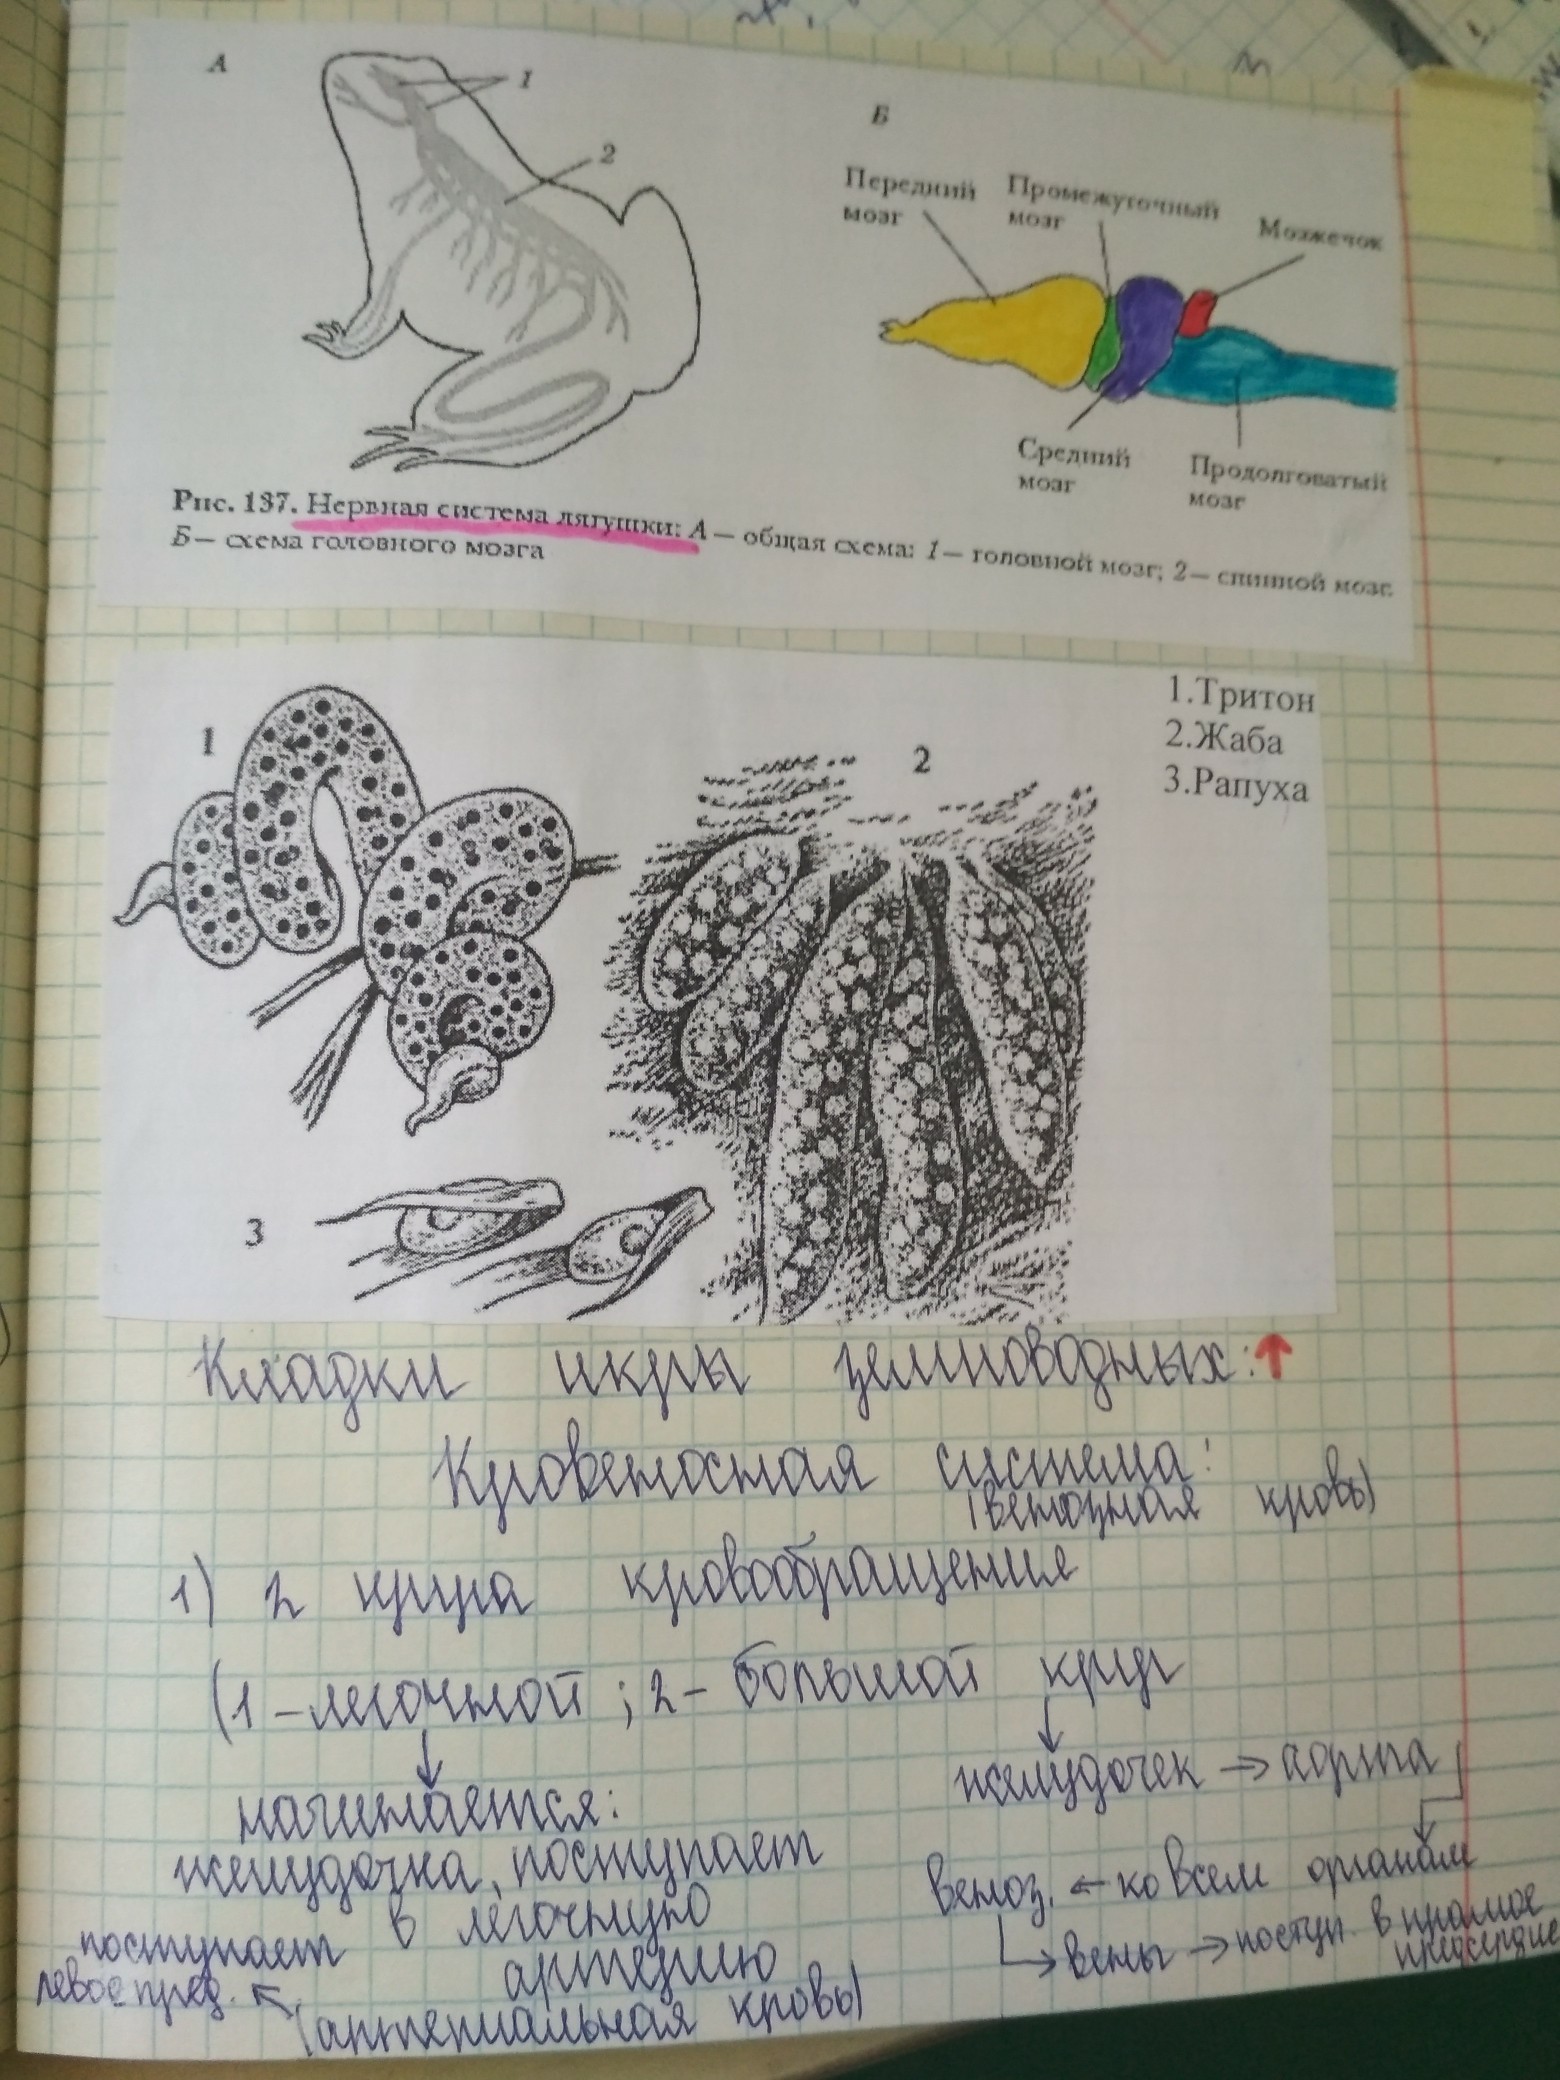 А
1
2
Б
Передний мозг
Промежуточный мозг
Мозжечок
Средний мозг
Продолговатый мозг
Рис. 137. Нервная система лягушки: А — общая схема: 1 — головной мозг; 2 — спинной мозг.
Б — схема головного мозга
1
2
3
1.Тритон
2.Жаба
3.Рапуха
Кладки икры земноводных:↑
Кровеносная система:
(венозная кровь)
1) 2 круга кровообращения
(1-легочной ; 2- большой круг
↓
начинается:
желудочка, поступает
в легочную
артерию
(артериальная кровь)
← поступает
левое пред.
↓
желудочек → аорта
↓
веноз. ← ко всем органам
↳ вены → поступ. в прамое
предсердие